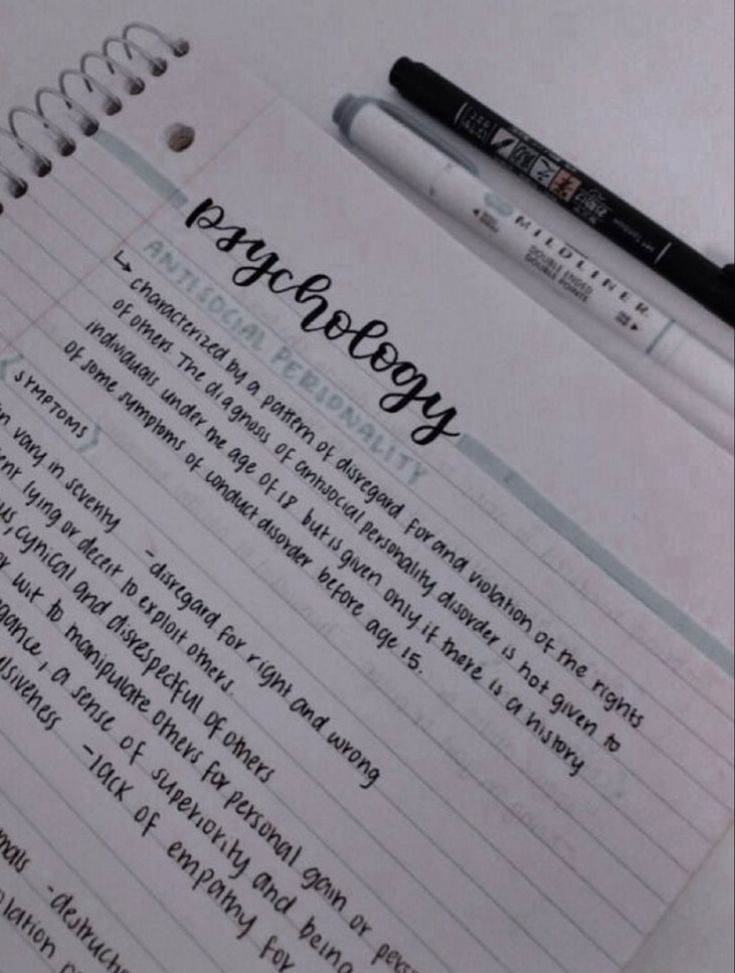 psychology
ANTISOCIAL PERSONALITY
↳ characterized by a pattern of disregard for and violation of the rights
of others. The diagnosis of antisocial personality disorder is not given to
individuals under the age of 18 but is given only if there is a history
of some symptoms of conduct disorder before age 15.
SYMPTOMS
vary in severity -disregard for right and wrong
lying or deceit to exploit others.
cynical and disrespectful of others
wit to manipulate others for personal gain or
a sense of superiority and being
-lack of empathy for
MILDLINER
DOUBLE ENDED
DOUBLE POINTS